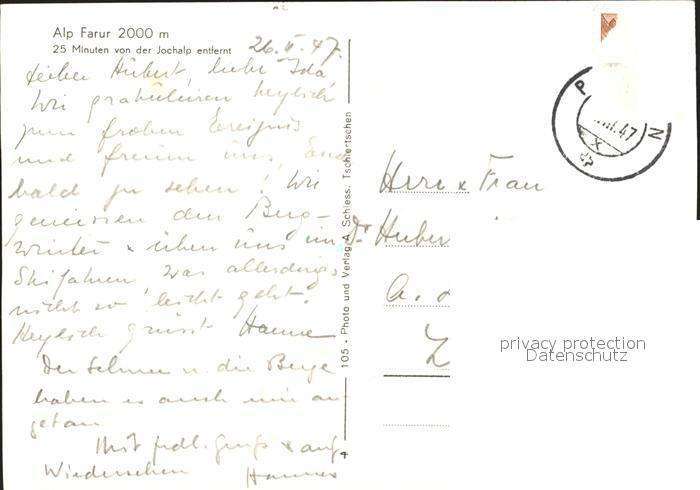 Alp Farur 2000 m
25 Minuten von der Jochalp entfernt
26. II. 47.
Lieber Hubert, liebe Ida
Wir gratulieren herzlich
zum frohen Ereignis
und freuen uns, Euch
bald zu sehen! Wir
geniessen den Berg-
winter & üben uns im
Skifahren, was allerdings
nicht so leicht geht.
Herzlich grüsst Hanne
Der Schnee u. die Berge
haben es auch mir an
getan.
Mit frdl. Gruß & auf
Wiedersehen Hannes
105 • Photo und Verlag A. Schiess, Tschiertschen
4
Herr & Frau
Dr. Huber
Z
P N
47
X
privacy protection
Datenschutz